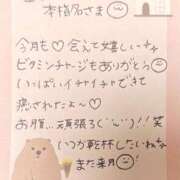 本指名さま
今月も♡会えて嬉しいナ
ビタミンチャージもありがとう
いっぱいイチャイチャできて
癒されたよ〜♡
お腹...頑張ろ(´ω`)!!笑
いつか乾杯したいねな
また来月!